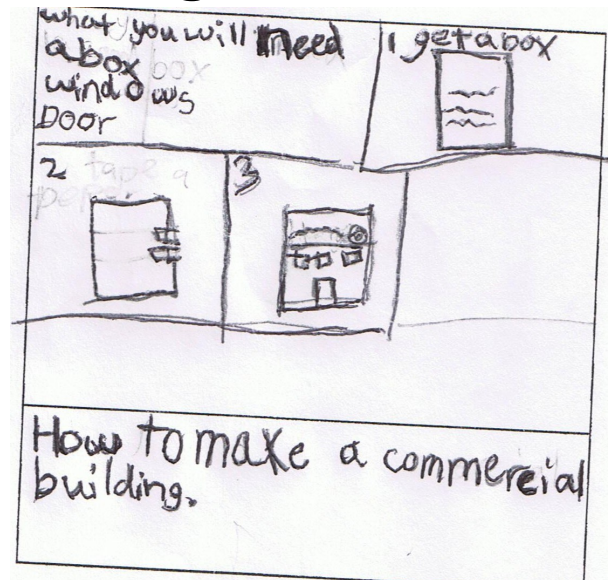 what you will need
a box
windows
Door
1 get a box
2 tape a
paper
3
How to make a commercial
building.